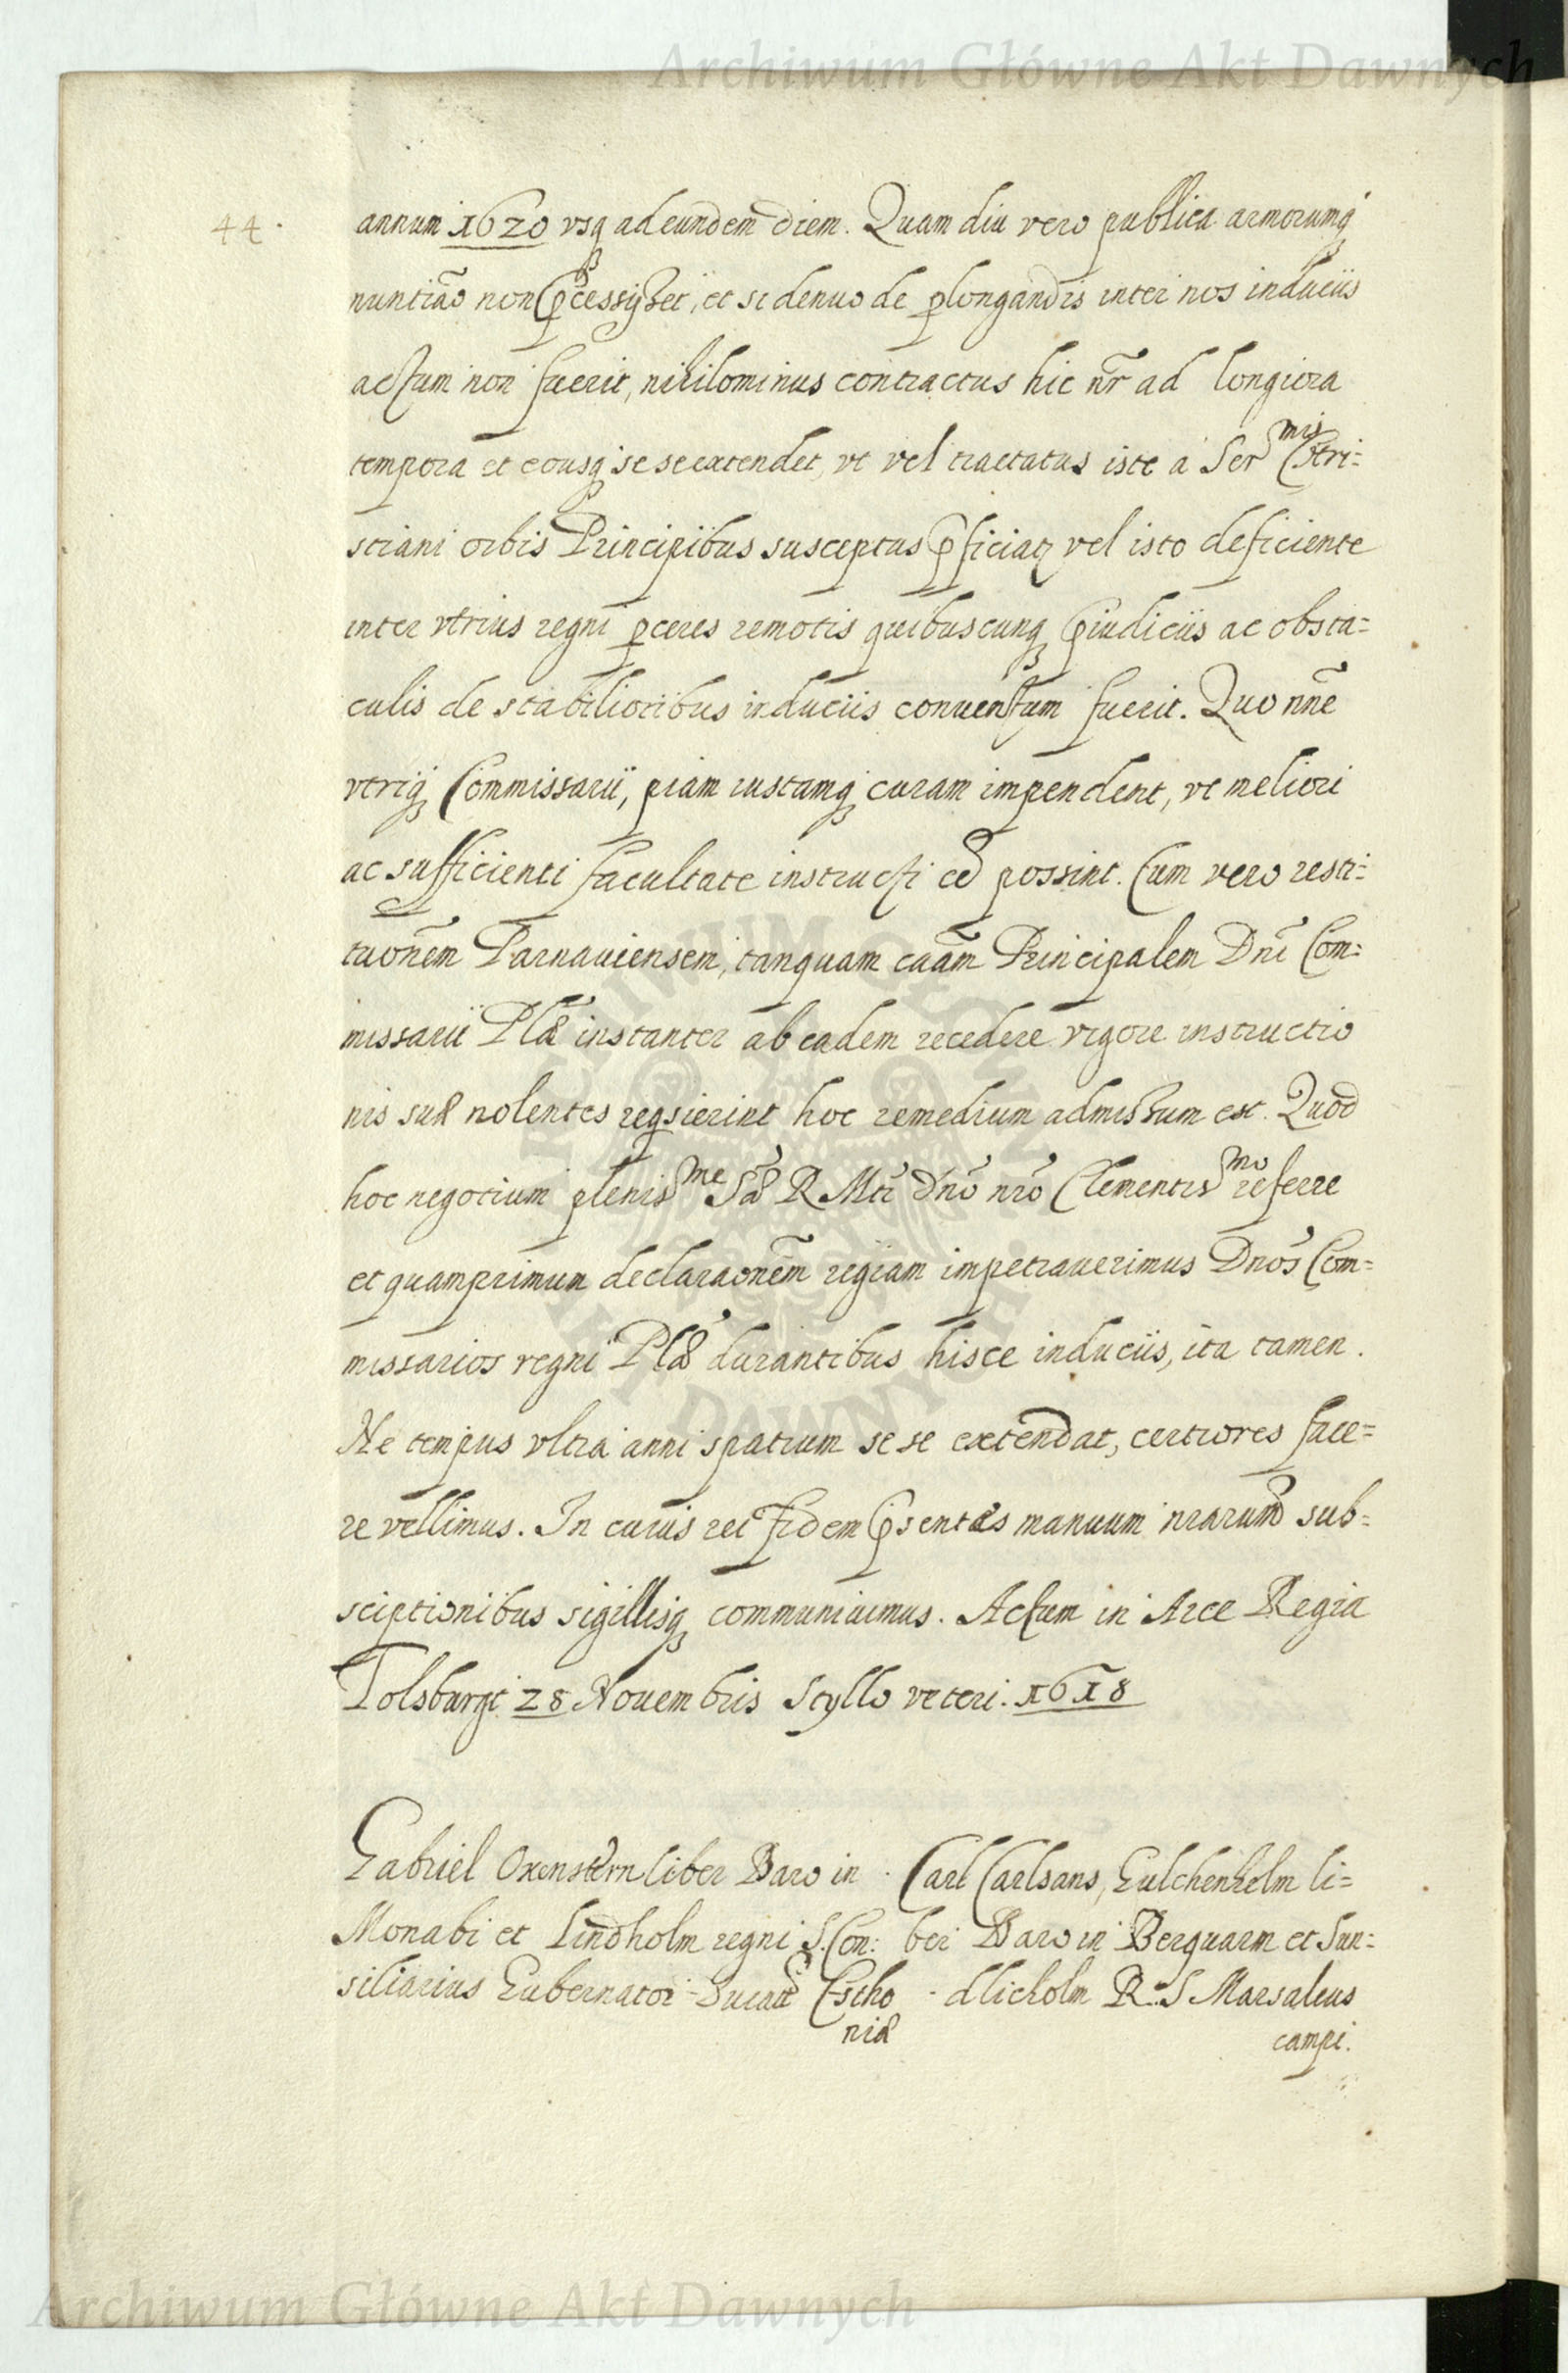 Archiwum Główne Akt Dawnych
44.
annum 1620 vsq ad eundem diem. Quam diu vero publica armorumq
nuntiãо non p̃cessisset, et si denuo de plongandis inter nos induciis
actum non fuerit, nihilominus contractus hic nr̃ ad longiora
tempora et eousq sese extendet, vt vel tractatus iste a Ser mis Chri=
stiani orbis Principibus susceptus pficiatz vel isto deficiente
inter vtrius regni pceres remotis quibuscunq p̃iudiciis ac obsta=
culis de stabilioribus induciis conuentum fuerit. Quo nñe
vtriq Commissarii, piam iustamq curam impendent, vt meliori
ac sufficienti facultate instructi cẽ possint. Cum vero resti=
tuõnem Parnauiensem, tanquam caãm Principalem Dni Com=
missarii Plæ instanter ab eadem recedere vigore instructio
nis suæ nolentes reqsierint hoc remedium admissum est. Quod
hoc negotium plenis me Sæ R Mti Dno nro Clementis mo referre
et quamprimum declaraõnem regiam impetrauerimus Dnos Com=
missarios regni Plæ durantibus hisce induciis, ita tamen.
Ne tempus vltra anni spatium sese extendat, certiores face=
re vellimus. In cuius rei fidem p̃sentes manuum nrarum sub=
sciptionibus sigillisq communiuimus. Actum in Arce Regia
Tolsburgi 28 Nouembris Styllo veteri. 1618
Gabriel Oxenstern liber Baro in
Monabi et Lindholm regni S. Con:
siliarius Gubernator Ducatt Estho
niæ
Carl Carlsans, Gulchenhelm li=
ber Baro in Berquarm et Sun=
dlicholm R. S Marsaleus
campi.
ARCHIWUM GŁÓWNE AKT DAWNYCH
Archiwum Główne Akt Dawnych